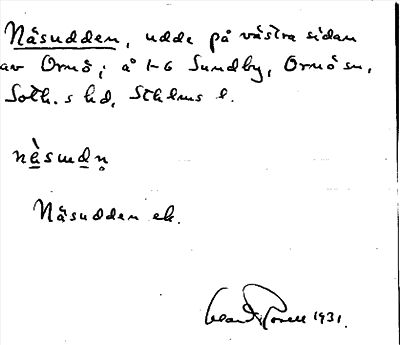 Näsudden, udde på västra sidan
av Ornö; å 1-6 Sundby, Ornö sn,
Soth.s hd, Sthlms l.
nèsudn̥
Näsudden ek.
1931.